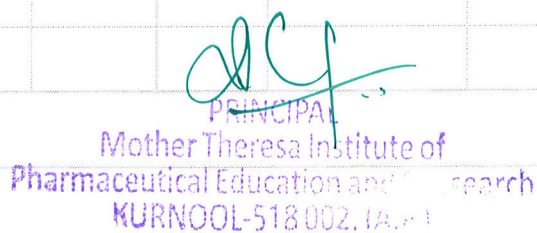 PRINCIPAL
Mother Theresa Institute of
Pharmaceutical Education and Research
KURNOOL-518 002. (A.P.)